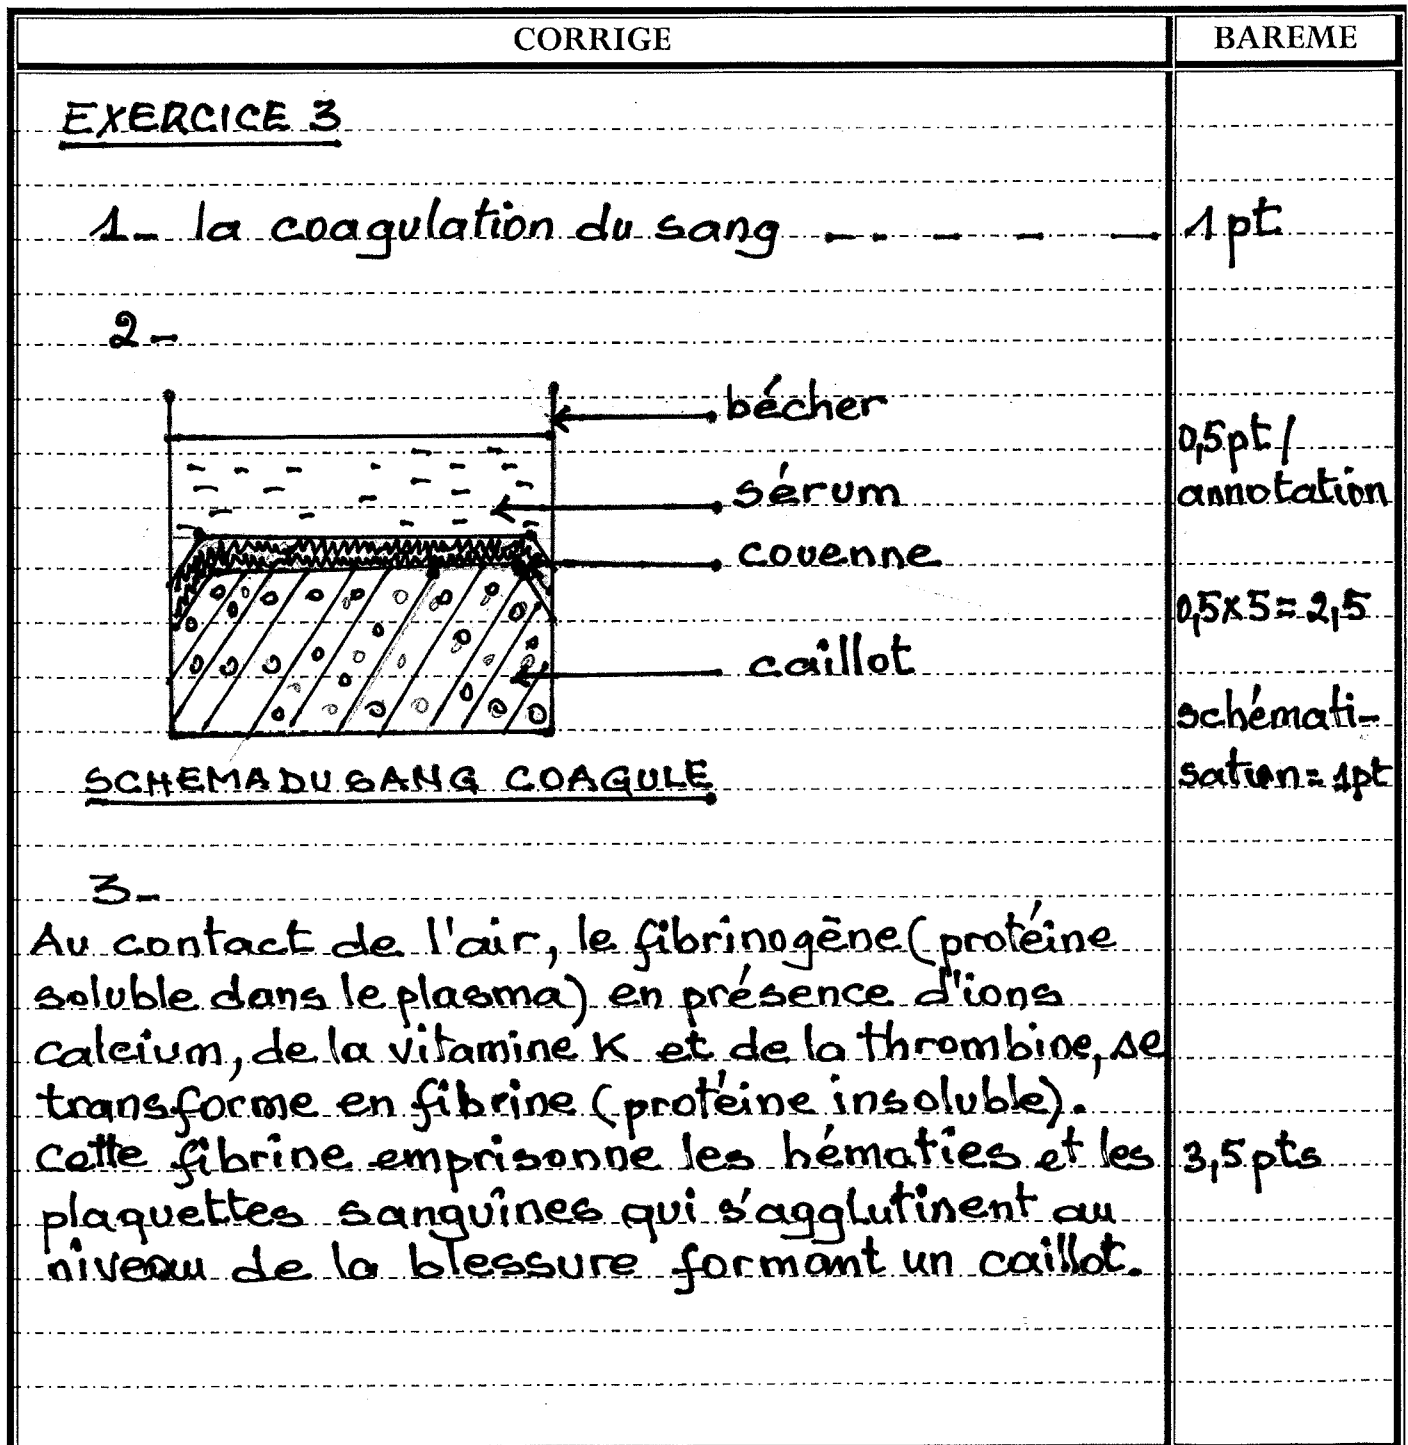 CORRIGE
BAREME
EXERCICE 3
1- la coagulation du sang - - - - - 1 pt
2-
bécher
sérum
couenne
caillot
0,5pt /
annotation
0,5x5 = 2,5
schémati-
sation = 1pt
SCHEMA DU SANG COAGULE
3-
Au contact de l'air, le fibrinogène (protéine
soluble dans le plasma) en présence d'ions
calcium, de la vitamine K et de la thrombine, se
transforme en fibrine (protéine insoluble).
Cette fibrine emprisonne les hématies et les 3,5 pts
plaquettes sanguines qui s'agglutinent au
niveau de la blessure formant un caillot.